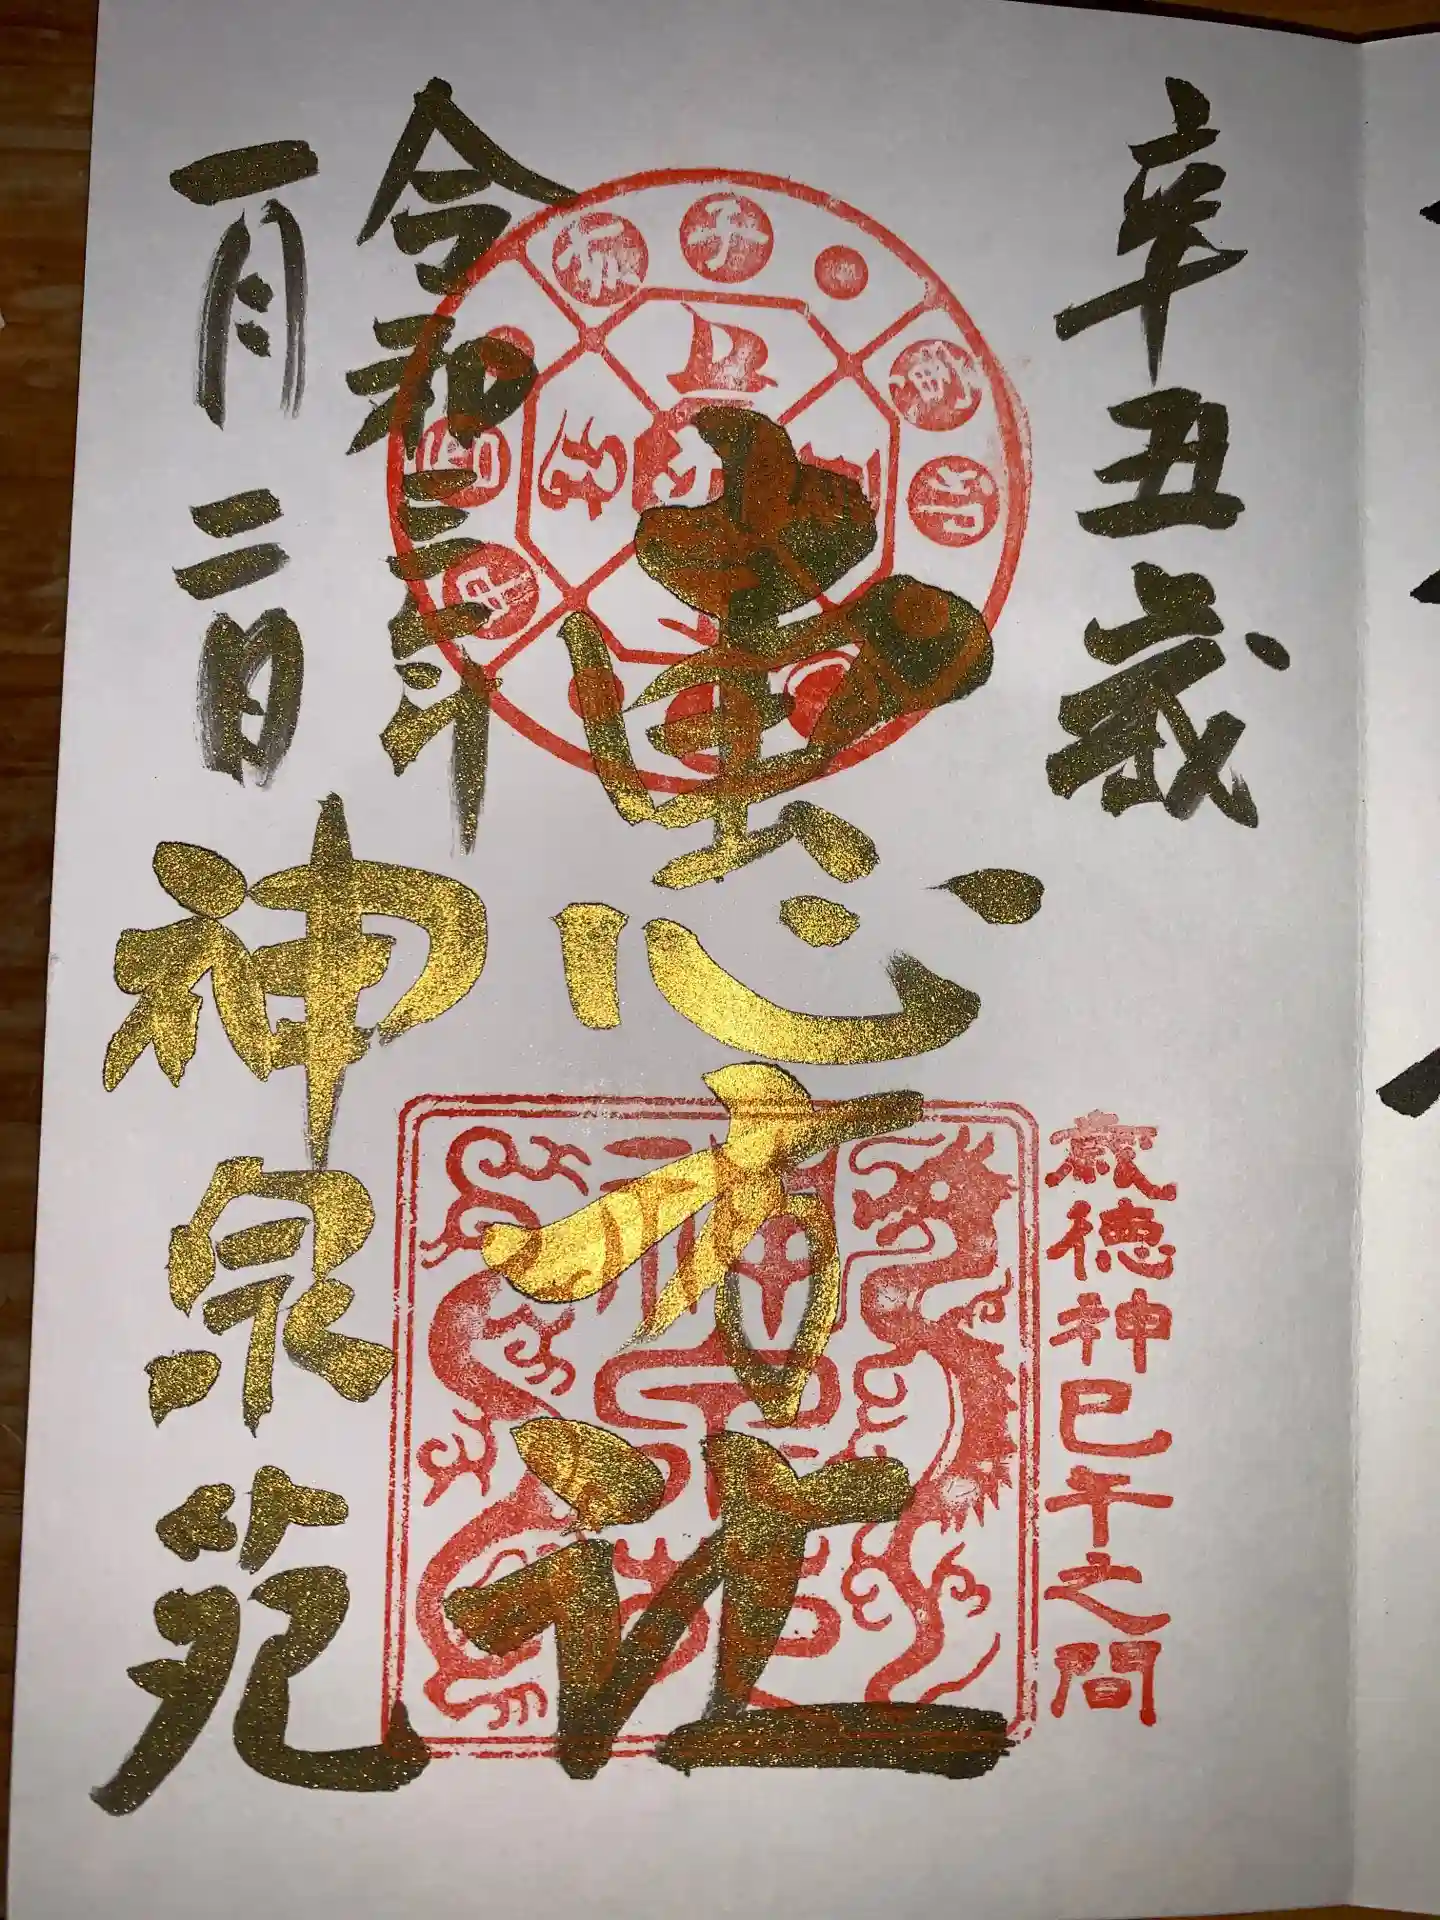 辛丑歳
歳徳神巳午之間
恵方社
令和三年
一月二日
神泉苑
子
卯